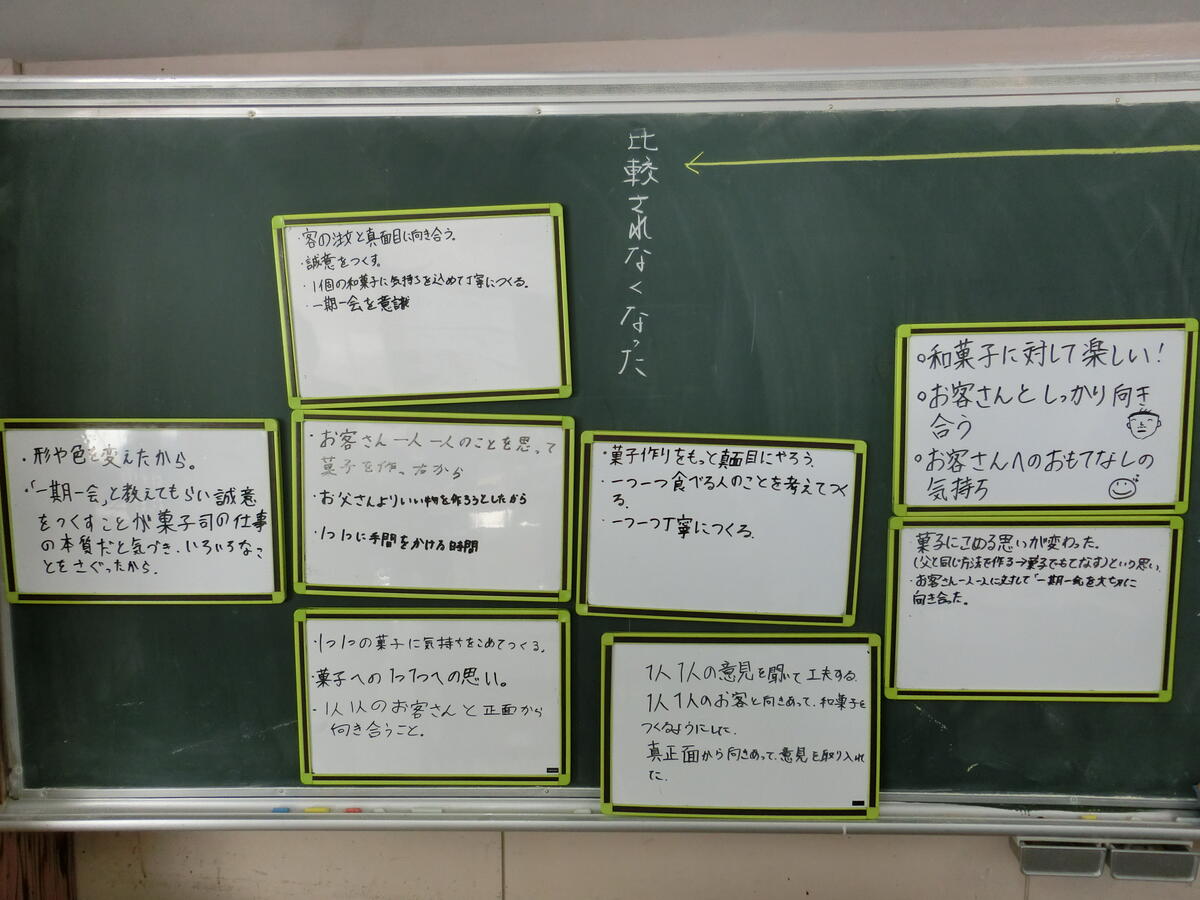 比較されなくなった
・和菓子に対して楽しい！
・お客さんとしっかり向き
合う
・お客さんへのおもてなしの
気持ち
菓子にこめる思いが変わった。
(父と同じ方法で作る→菓子でもてなす)という思い。
・お客さん一人一人に対して「一期一会を大切に
向き合った。
・菓子作りをもっと真面目にやろう。
・一つ一つ食べる人のことを考えてつく
る。
・一つ一つ丁寧につくる。
1人1人の意見を聞いて工夫する。
1人1人のお客と向きあって、和菓子を
つくるようにした。
真正面から向きあって、意見を取り入れ
た。
・客の注文と真面目に向き合う。
・誠意をつくす。
・1個の和菓子に気持ちを込めて丁寧につくる。
・一期一会を意識
・お客さん一人一人のことを思って
菓子を作ったから
・お父さんよりいい物を作ろうとしたから
・1つ1つに手間をかける時間
・1つ1つの菓子に気持ちをこめてつくる。
菓子への1つ1つへの思い。
・1人1人のお客さんと正面から
向き合うこと。
・形や色を変えたから。
・「一期一会」と教えてもらい誠意
をつくすことが菓子司の仕事
の本質だと気づき、いろいろなこ
とをさぐったから。